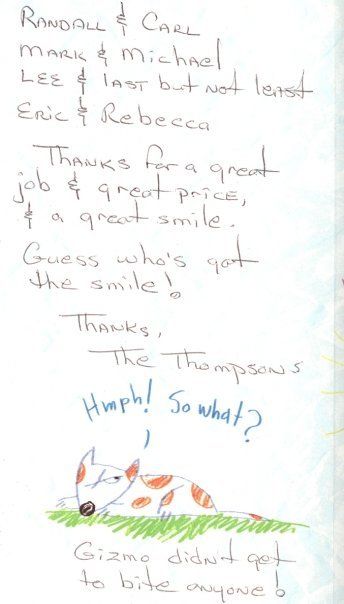 RANDALL & CARL
MARK & Michael
LEE & LAST but Not least
Eric & Rebecca
THANKS for a great
job & great price,
& a great smile.
Guess who's got
the smile!
THANKS,
The Thompsons
Hmph! So what?
Gizmo didn't get
to bite anyone!